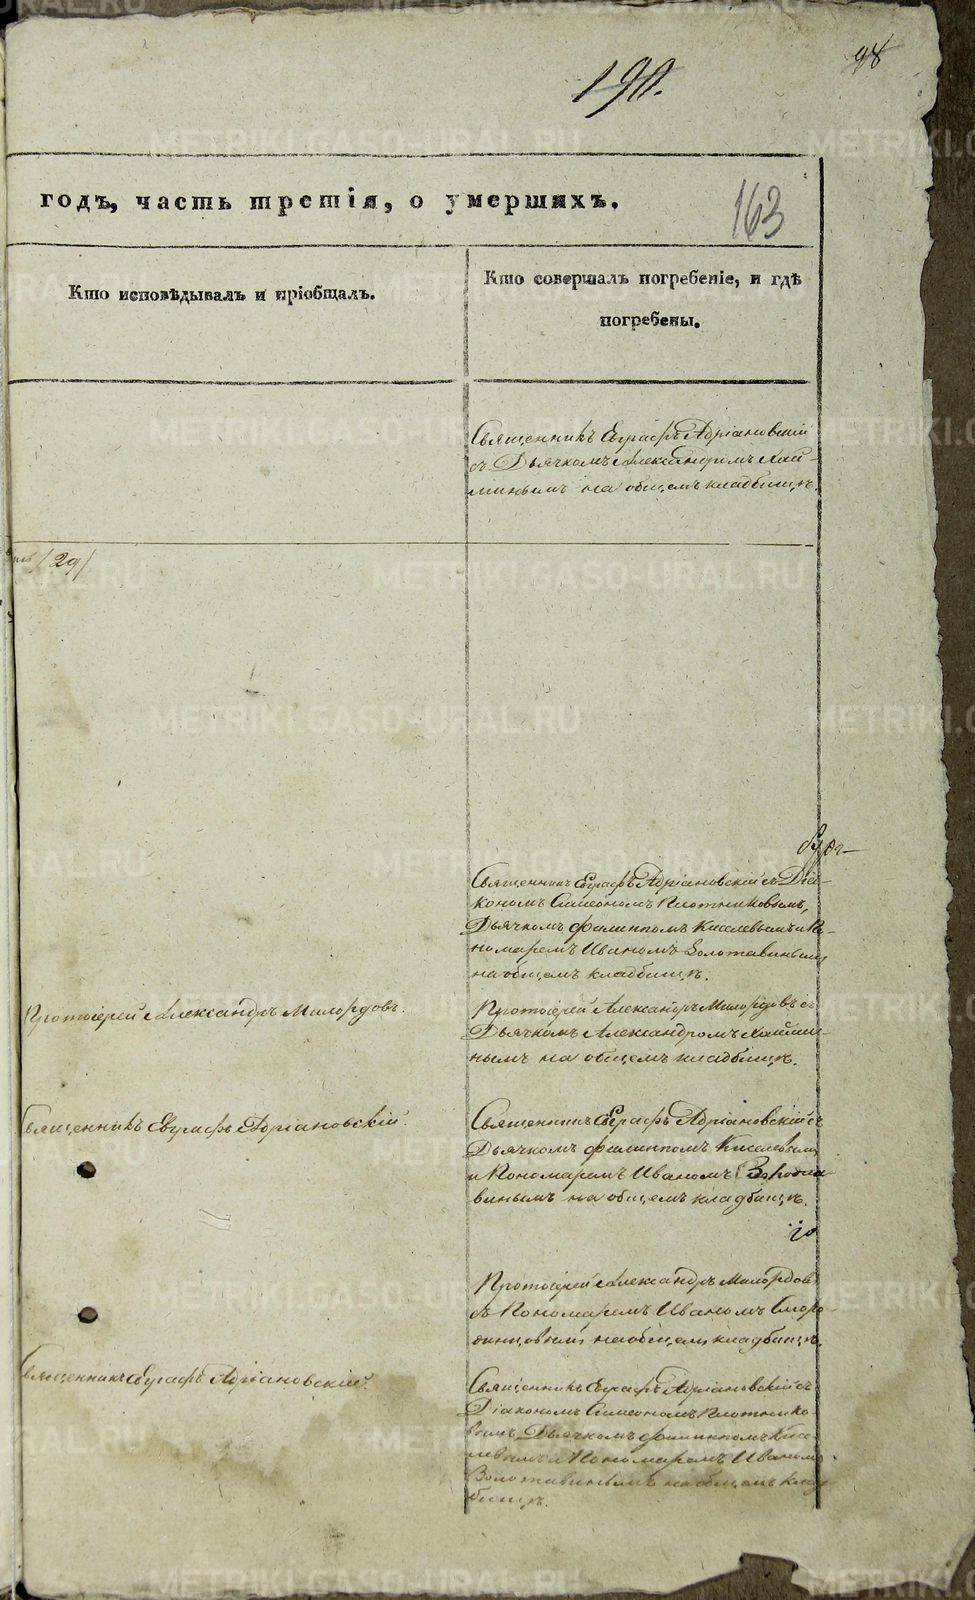 98
190.
годъ, часть третія, о умершихъ.
163
Кто исповѣдывалъ и пріобщалъ.
Кто совершалъ погребеніе, и гдѣ
погребены.
Священникъ Евграфъ Адріановскій
съ Дьячкомъ Александромъ Хай-
минымъ на общемъ кладбищѣ.
/29/
Священникъ Евграфъ Адріановскій съ Діа-
кономъ Симеономъ Плотниковымъ,
Дьячкомъ Филиппомъ Киселевымъ и По-
номаремъ Иваномъ Золотавинымъ
на общемъ кладбищѣ.
Протоіерей Александръ Милордовъ.
Протоіерей Александръ Милордовъ съ
Дьячкомъ Александромъ Хайми-
нымъ на общемъ кладбищѣ.
Священникъ Евграфъ Адріановскій.
Священникъ Евграфъ Адріановскій съ
Дьячкомъ Филиппомъ Киселевымъ
и Пономаремъ Иваномъ Золота-
винымъ на общемъ кладбищѣ.
Протоіерей Александръ Милордовъ
съ Пономаремъ Иваномъ Сморо-
динцовымъ на общемъ кладбищѣ.
Священникъ Евграфъ Адріановскій.
Священникъ Евграфъ Адріановскій съ
Діакономъ Симеономъ Плотнико-
вымъ, Дьячкомъ Филиппомъ Кисе-
левымъ и Пономаремъ Иваномъ
Золотавинымъ на общемъ клад-
бищѣ.
METRIKI.GASO-URAL.RU